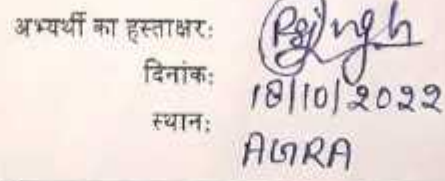 अभ्यर्थी का हस्ताक्षर:
दिनांक: 18/10/2022
स्थान: AGRA